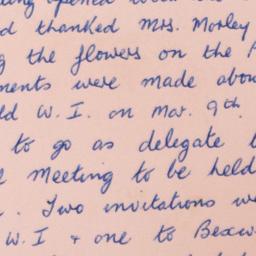 opened
d thanked Mrs. Morley
g the flowers on the
ments were made abou
ld W.I. on Mar. 9th.
to go as delegate
meeting to be held
. Two invitations w
W.I + one to Bexw